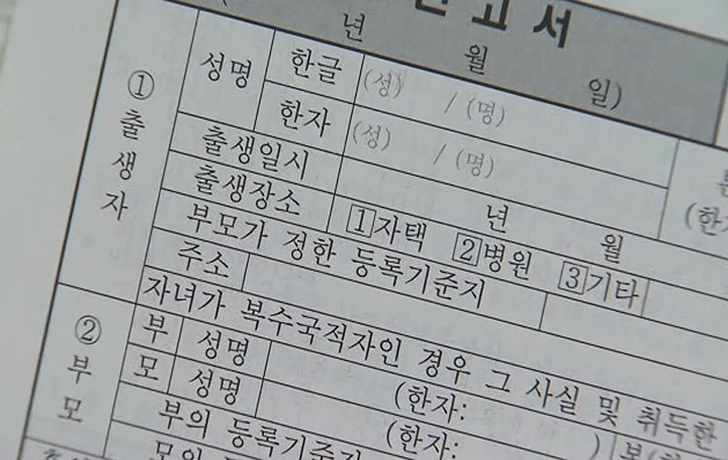 고서
년 월 일)
① 출생자
성명
한글 (성) / (명)
한자 (성) / (명)
출생일시 년 월
출생장소 1 자택 2 병원 3 기타
부모가 정한 등록기준지
주소
자녀가 복수국적자인 경우 그 사실 및 취득한
② 부모
부 성명 (한자:
모 성명 (한자: )
부의 등록기준지
(한자